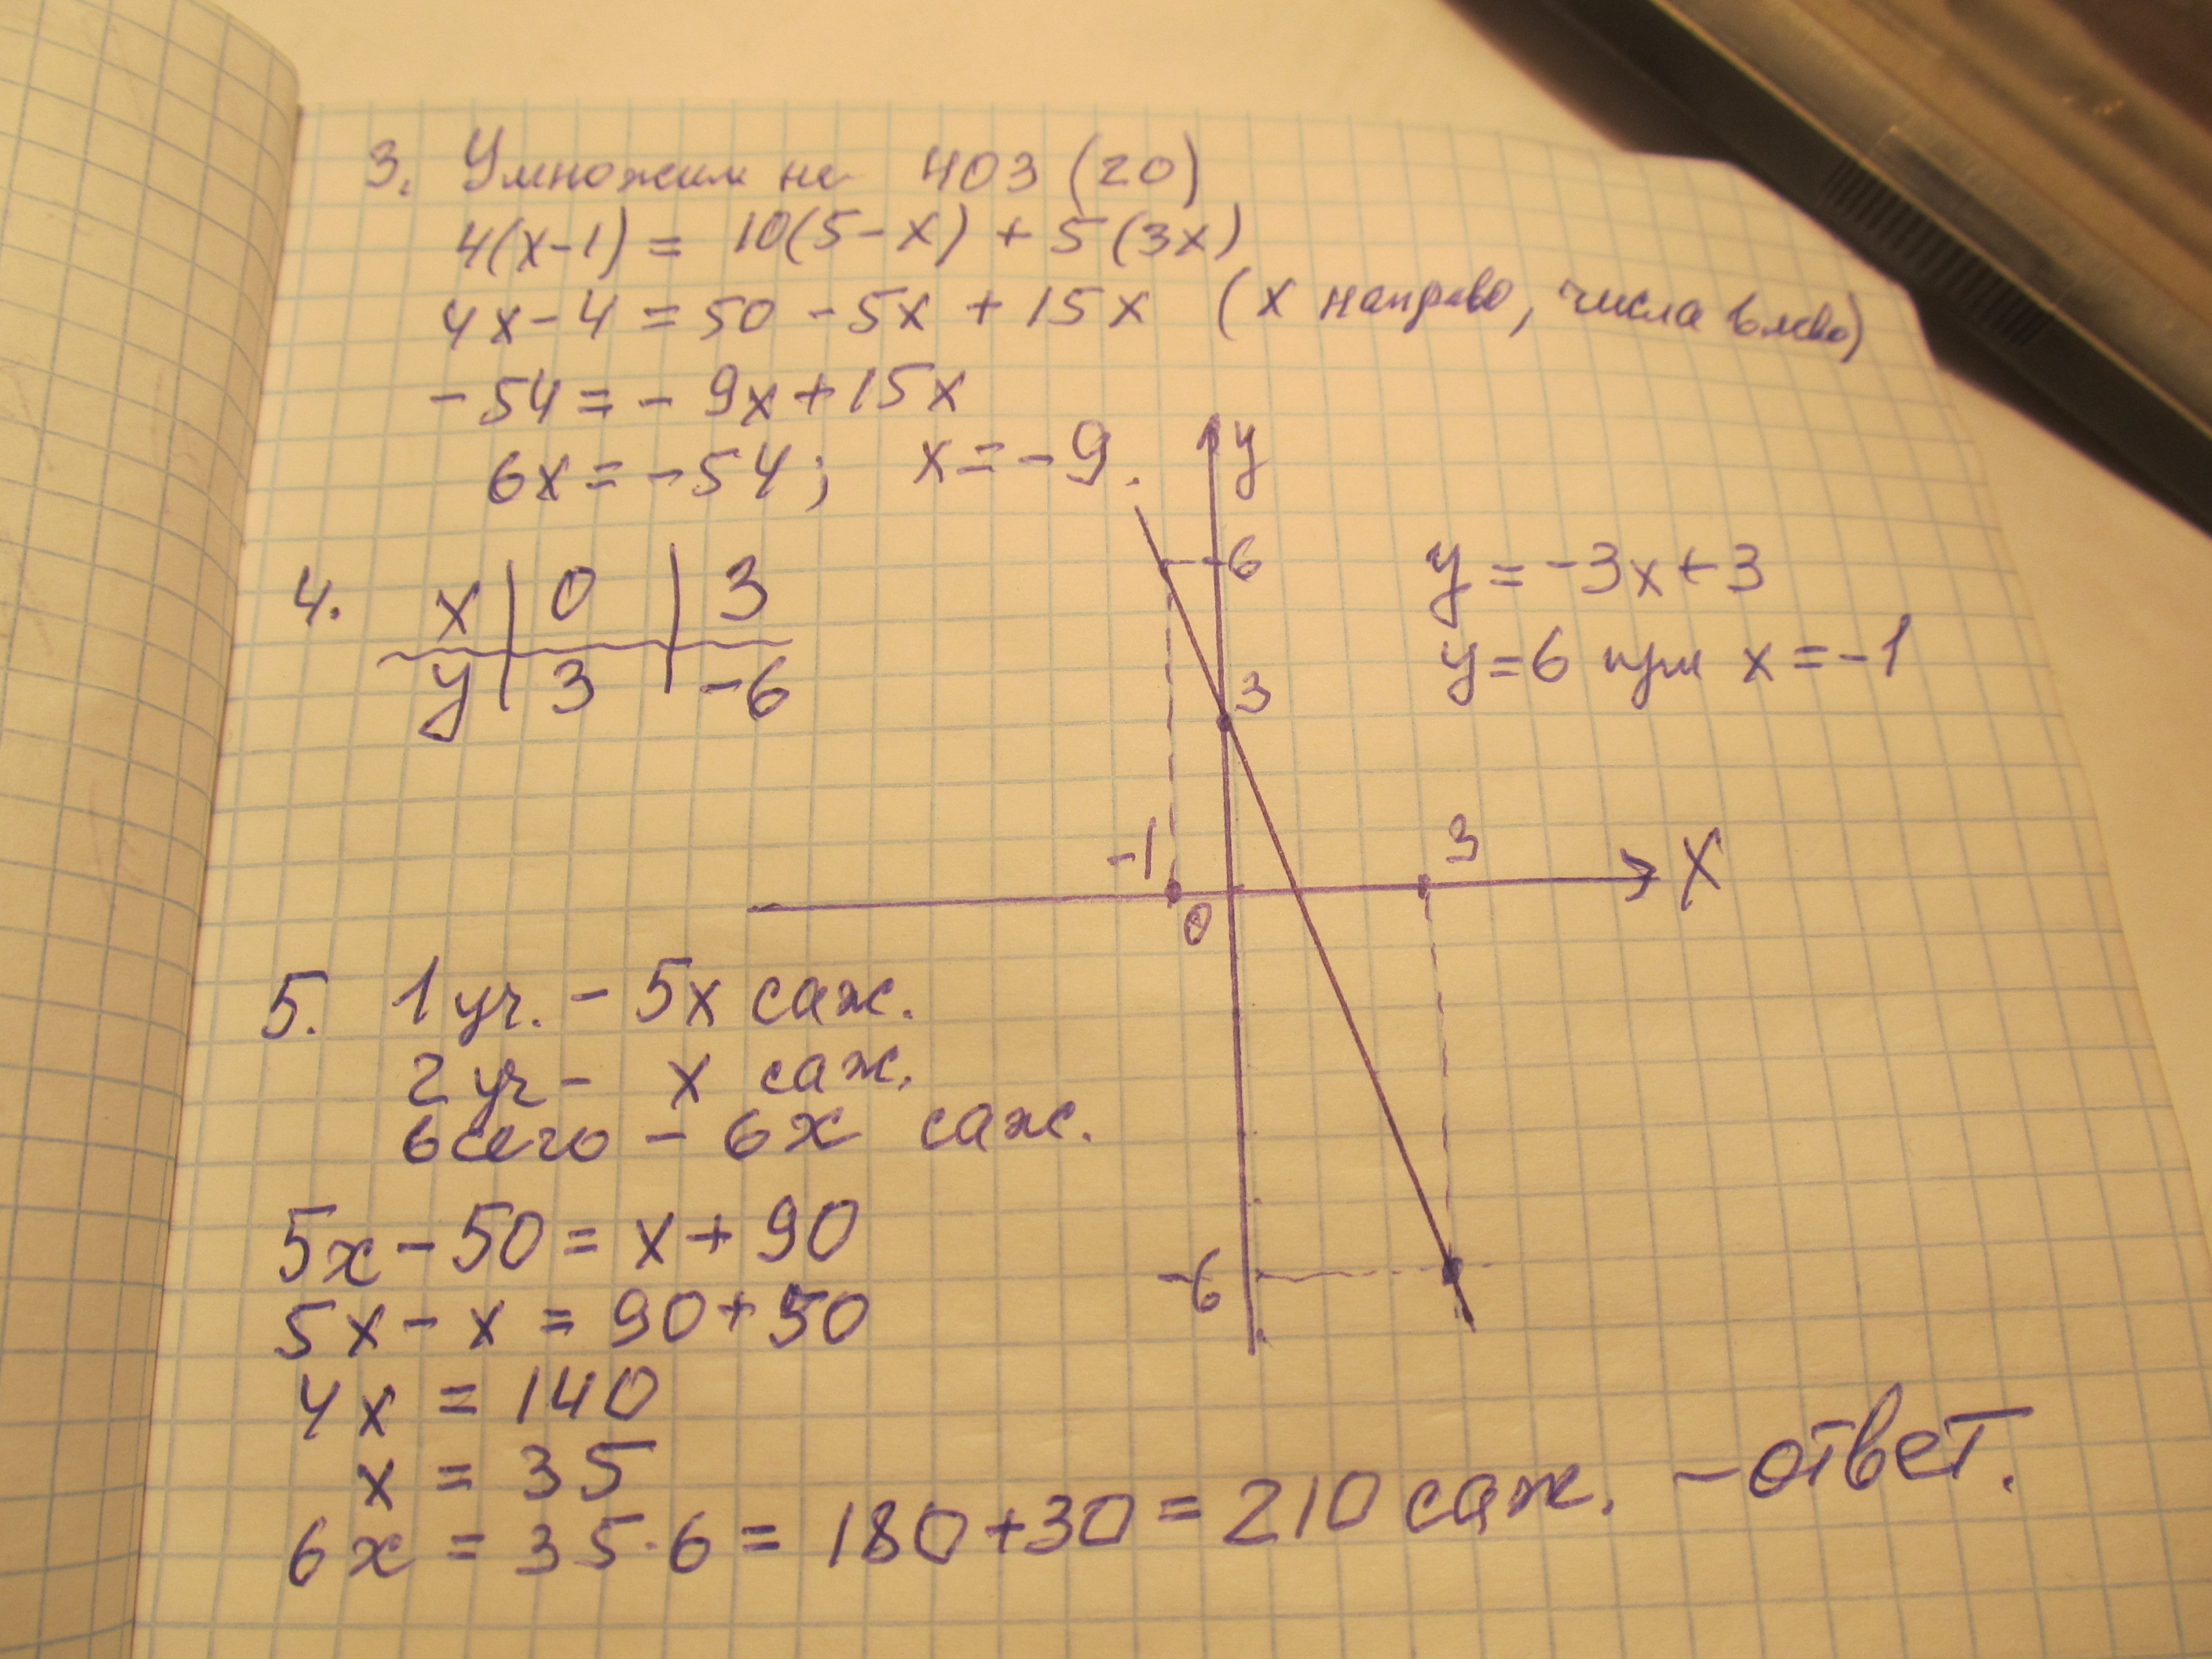 3. Умножим на НОЗ (20)
4(x-1) = 10(5-x) + 5(3x)
4x-4 = 50 -5x + 15x (x направо, числа влево)
-54 = -9x+15x
6x = -54; x = -9.
4. x | 0 | 3
y | 3 | -6
y
6
3
-1
0
3
X
-6
y = -3x+3
y=6 при x=-1
5. 1 уч. - 5x саж.
2 уч - x саж.
всего - 6x саж.
5x-50 = x+90
5x-x = 90+50
4x = 140
x = 35
6x = 35·6 = 180+30 = 210 саж. - ответ.